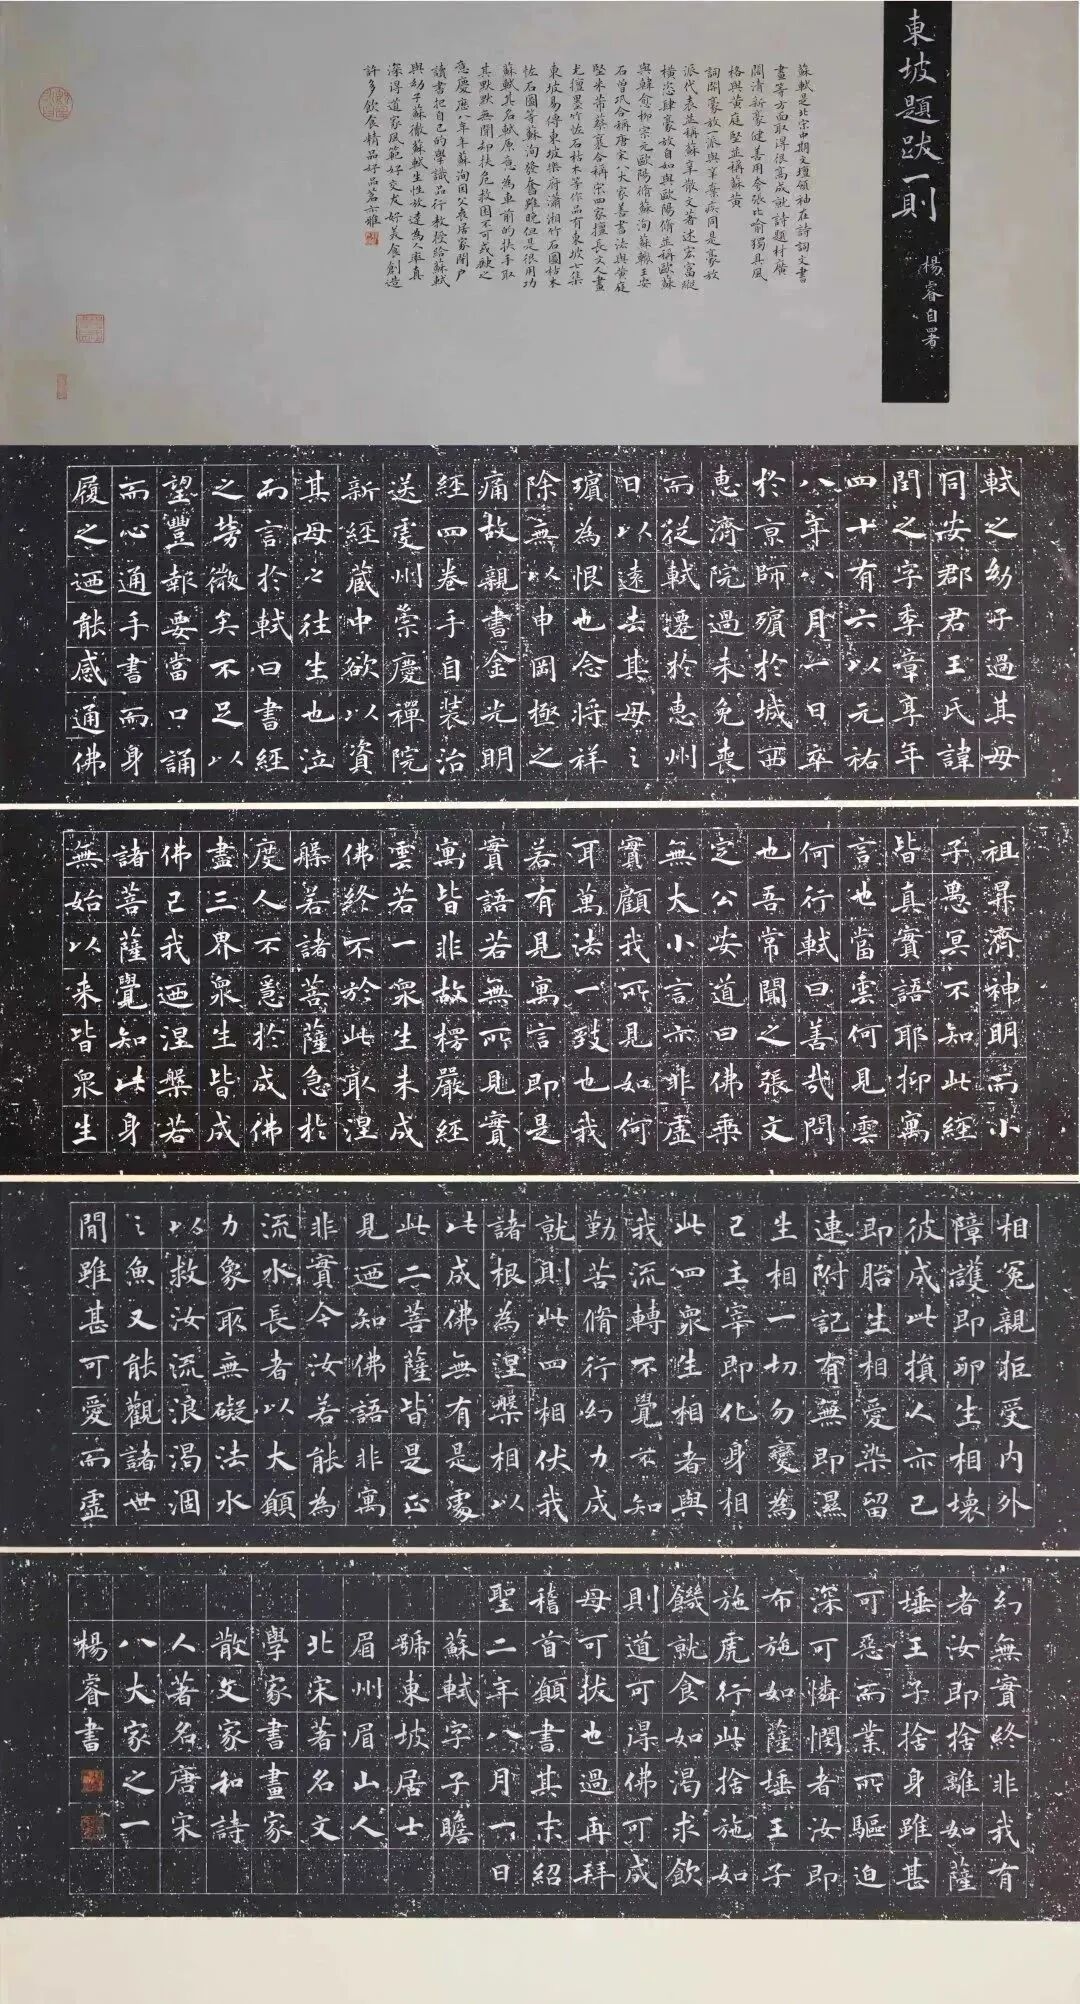 東坡題跋一則
楊睿自署
蘇軾是北宋中期文壇領袖在詩詞文書
畫等方面取得很高成就詩題材廣
闊清新豪健善用夸張比喻獨具風
格與黃庭堅並稱蘇黃
詞開豪放一派與辛棄疾同是豪放
派代表並稱蘇辛散文著述宏富縱
橫恣肆豪放自如與歐陽脩並稱歐蘇
與韓愈柳宗元歐陽脩蘇洵蘇轍王安
石曾鞏合稱唐宋八大家善書法與黃庭
堅米芾蔡襄合稱宋四家擅長文人畫
尤擅墨竹怪石枯木等作品有東坡七集
東坡易傳東坡樂府瀟湘竹石圖枯木
怪石圖等蘇洵發奮雖晚但是很用功
蘇軾其名軾原意為車前的扶手取
其默默無聞却扶危救困不可或缺之
意慶應八年年蘇洵因父喪居家閉户
讀書把自己的學識品行教授給蘇軾
與幼子蘇轍蘇軾生性放達為人率真
深得道家風範好交友好美食創造
許多飲食精品好品茗亦雅
軾之幼子過其母
同安郡君王氏諱
閏之字季章享年
四十有六以元祐
八年八月一日卒
於京師殯於城西
惠濟院過未免喪
而從軾遷於惠州
日以遠去其母之
殯為恨也念將祥
除無以申罔極之
痛故親書金光明
經四卷手自裝治
送虔州崇慶禪院
新經藏中欲以資
其母之往生也泣
而言於軾曰書經
之勞微矣不足以
望豐報要當口誦
而心通手書而身
履之迺能感通佛
祖昇濟神明而小
子愚冥不知此經
皆真實語耶抑寓
言也當雲何見雲
何行軾曰善哉問
也吾常聞之張文
定公安道曰佛乘
無大小言亦非虛
實顧我所見如何
耳萬法一致也我
若有見寓言即是
實語若無所見實
寓皆非故楞嚴經
雲若一衆生未成
佛終不於此取涅
槃若諸菩薩急於
度人不急於成佛
盡三界衆生皆成
佛已我迺涅槃若
諸菩薩覺知此身
無始以来皆衆生
相冤親拒受内外
障護即卵生相壞
彼成此損人亦己
即胎生相愛染留
連附記有無即濕
生相一切勿變為
己主宰即化身相
此四衆生相者與
我流轉不覺不知
勤苦脩行幻力成
就則此四相伏我
諸根為涅槃相以
此成佛無有是處
此二菩薩皆是正
見迺知佛語非寓
非實今汝若能為
流水長者以大願
力象取無礙法水
以救汝流浪渴涸
之魚又能觀諸世
間雖甚可愛而虛
幻無實終非我有
者汝即捨離如薩
埵王子捨身雖甚
可惡而業所驅迫
深可憐憫者汝即
布施如薩埵王子
施虎行此捨施如
饑就食如渴求飲
則道可得佛可成
母可拔也過再拜
稽首願書其末紹
聖二年八月一日
蘇軾字子瞻
號東坡居士
眉州眉山人
北宋著名文
學家書畫家
散文家和詩
人著名唐宋
八大家之一
楊睿書